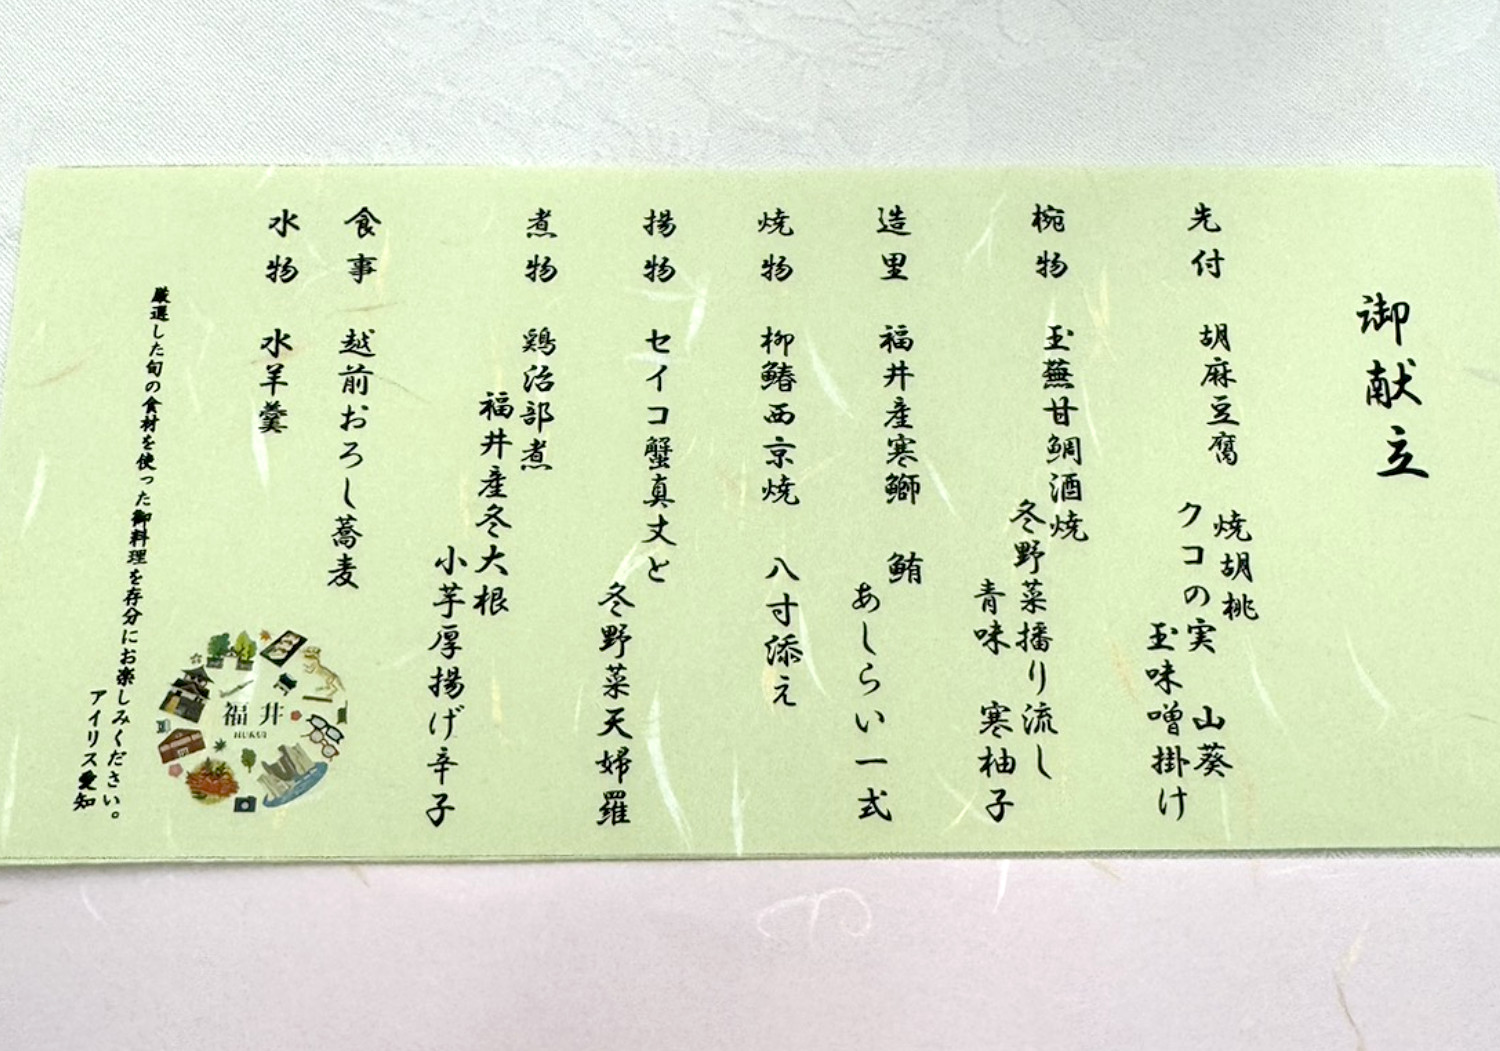 御献立
先付 胡麻豆腐 焼胡桃
クコの実 山葵
玉味噌掛け
椀物 玉蕪甘鯛酒焼
冬野菜播り流し
青味 寒柚子
造里 福井産寒鰤 鮪
あしらい一式
焼物 柳鰆西京焼 八寸添え
揚物 セイコ蟹真丈と
冬野菜天婦羅
煮物 鶏治部煮
福井産冬大根
小芋厚揚げ辛子
食事 越前おろし蕎麦
水物 水羊羹
厳選した旬の食材を使った御料理を存分にお楽しみください。
アイリス愛知
福井
FUKUI